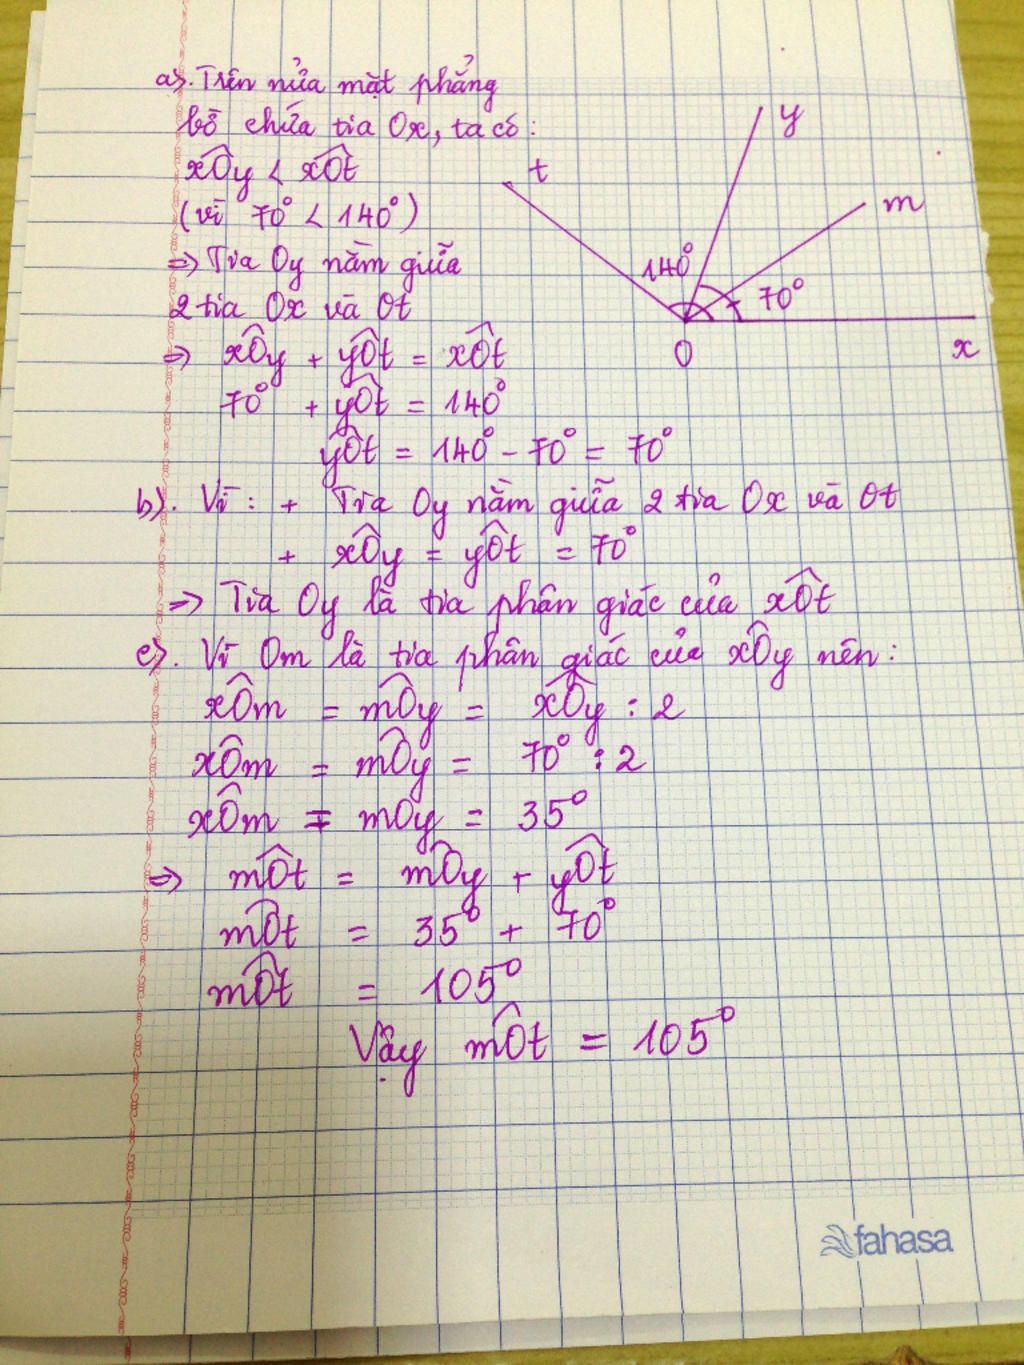 a). Trên nửa mặt phẳng
bờ chứa tia Ox, ta có:
xÔy < xÔt
(vì 70° < 140°)
=> Tia Oy nằm giữa
2 tia Ox và Ot
=> xÔy + yÔt = xÔt
70° + yÔt = 140°
yÔt = 140° - 70° = 70°
t
y
m
140°
70°
O
x
b). Vì: + Tia Oy nằm giữa 2 tia Ox và Ot
+ xÔy = yÔt = 70°
=> Tia Oy là tia phân giác của xÔt
c). Vì Om là tia phân giác của xÔy nên:
xÔm = mÔy = xÔy : 2
xÔm = mÔy = 70° : 2
xÔm = mOy = 35°
=> mÔt = mÔy + yÔt
mÔt = 35° + 70°
mÔt = 105°
Vậy mÔt = 105°
fahasa